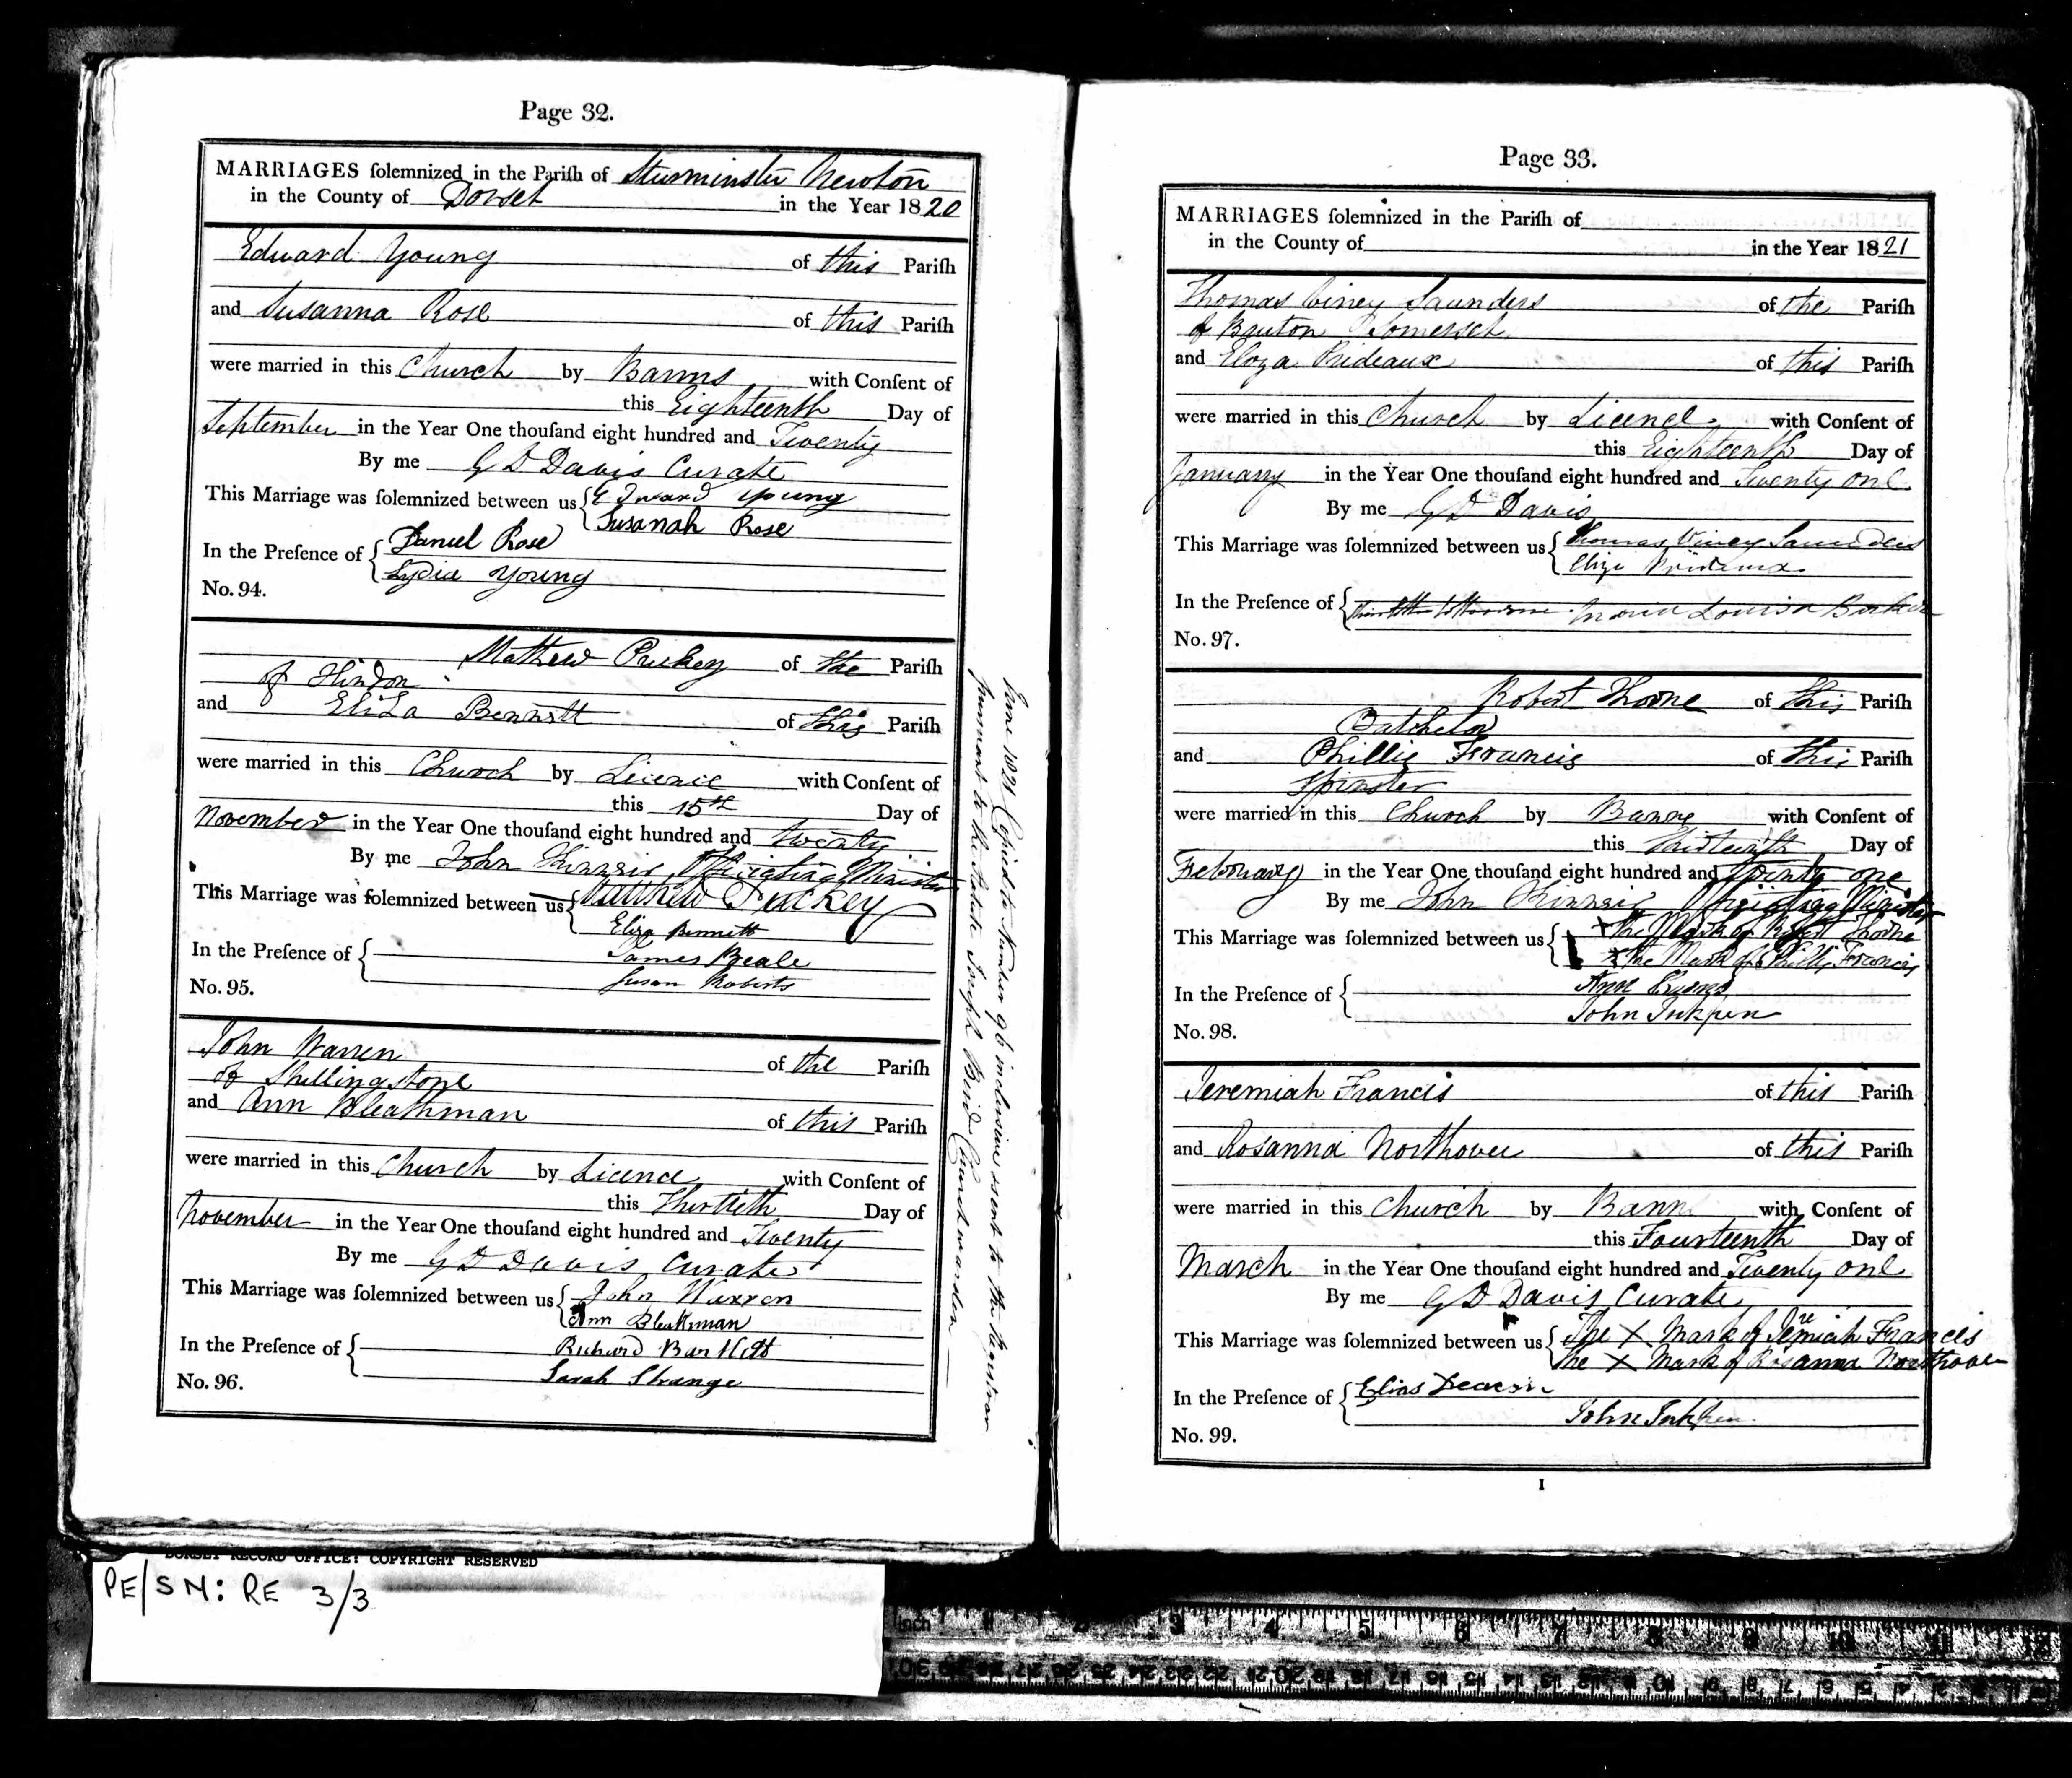 Page 32.
MARRIAGES solemnized in the Parish of Sturminster Newton
in the County of Dorset in the Year 1820
Edward Young of this Parish
and Susanna Rose of this Parish
were married in this Church by Banns with Consent of
this Eighteenth Day of
September in the Year One thousand eight hundred and Twenty
By me G D Davis Curate
This Marriage was solemnized between us { Edward Young
Susanah Rose
In the Presence of { Daniel Rose
Lydia Young
No. 94.
Mathew Puckey of the Parish
of Hindon
and Eliza Bennett of this Parish
were married in this Church by Licence with Consent of
this 15th Day of
November in the Year One thousand eight hundred and twenty
By me John Officiating Minister
This Marriage was solemnized between us { Matthew Puckey
Eliza Bennett
In the Presence of { James Beale
Susan Roberts
No. 95.
John Warren of the Parish
of Shillingstone
and Ann Bleathman of this Parish
were married in this Church by Licence with Consent of
this Thirtieth Day of
November in the Year One thousand eight hundred and Twenty
By me G D Davis Curate
This Marriage was solemnized between us { John Warren
Ann Bleathman
In the Presence of { Richard Bartlett
Sarah Strange
No. 96.
June 1821 Copied to Number 96 inclusive & sent to the Registrar
pursuant to the Statute Joseph Bird Churchwarden
Page 33.
MARRIAGES solemnized in the Parish of
in the County of in the Year 1821
Thomas Viney Saunders of the Parish
of Bruton Somerset
and Eliza Prideaux of this Parish
were married in this Church by Licence with Consent of
this Eighteenth Day of
January in the Year One thousand eight hundred and Twenty one
By me G D Davis
This Marriage was solemnized between us { Thomas Viney Saunders
Eliza Prideaux
In the Presence of { Maria Louisa Barker
No. 97.
Robert Thorne of this Parish
Batchelor
and Phillis Francis of this Parish
Spinster
were married in this Church by Banns with Consent of
this Day of
Febouary in the Year One thousand eight hundred and twenty one
By me John Officiating Minister
This Marriage was solemnized between us { X the Mark of Robert Thorne
X the Mark of Phillis Francis
In the Presence of { Ann
John Inkpen
No. 98.
Jeremiah Francis of this Parish
and Rosanna Northover of this Parish
were married in this Church by Bann with Consent of
this Fourteenth Day of
March in the Year One thousand eight hundred and Twenty one
By me G D Davis Curate
This Marriage was solemnized between us { The X Mark of Jeremiah Francis
The X Mark of Rosanna Northover
In the Presence of { Elias Deacon
John Inkpen
No. 99.
I
DORSET RECORD OFFICE: COPYRIGHT RESERVED
PE/SN: RE 3/3
inch 1 2 3 4 5 6 7 8 9 10 11 12